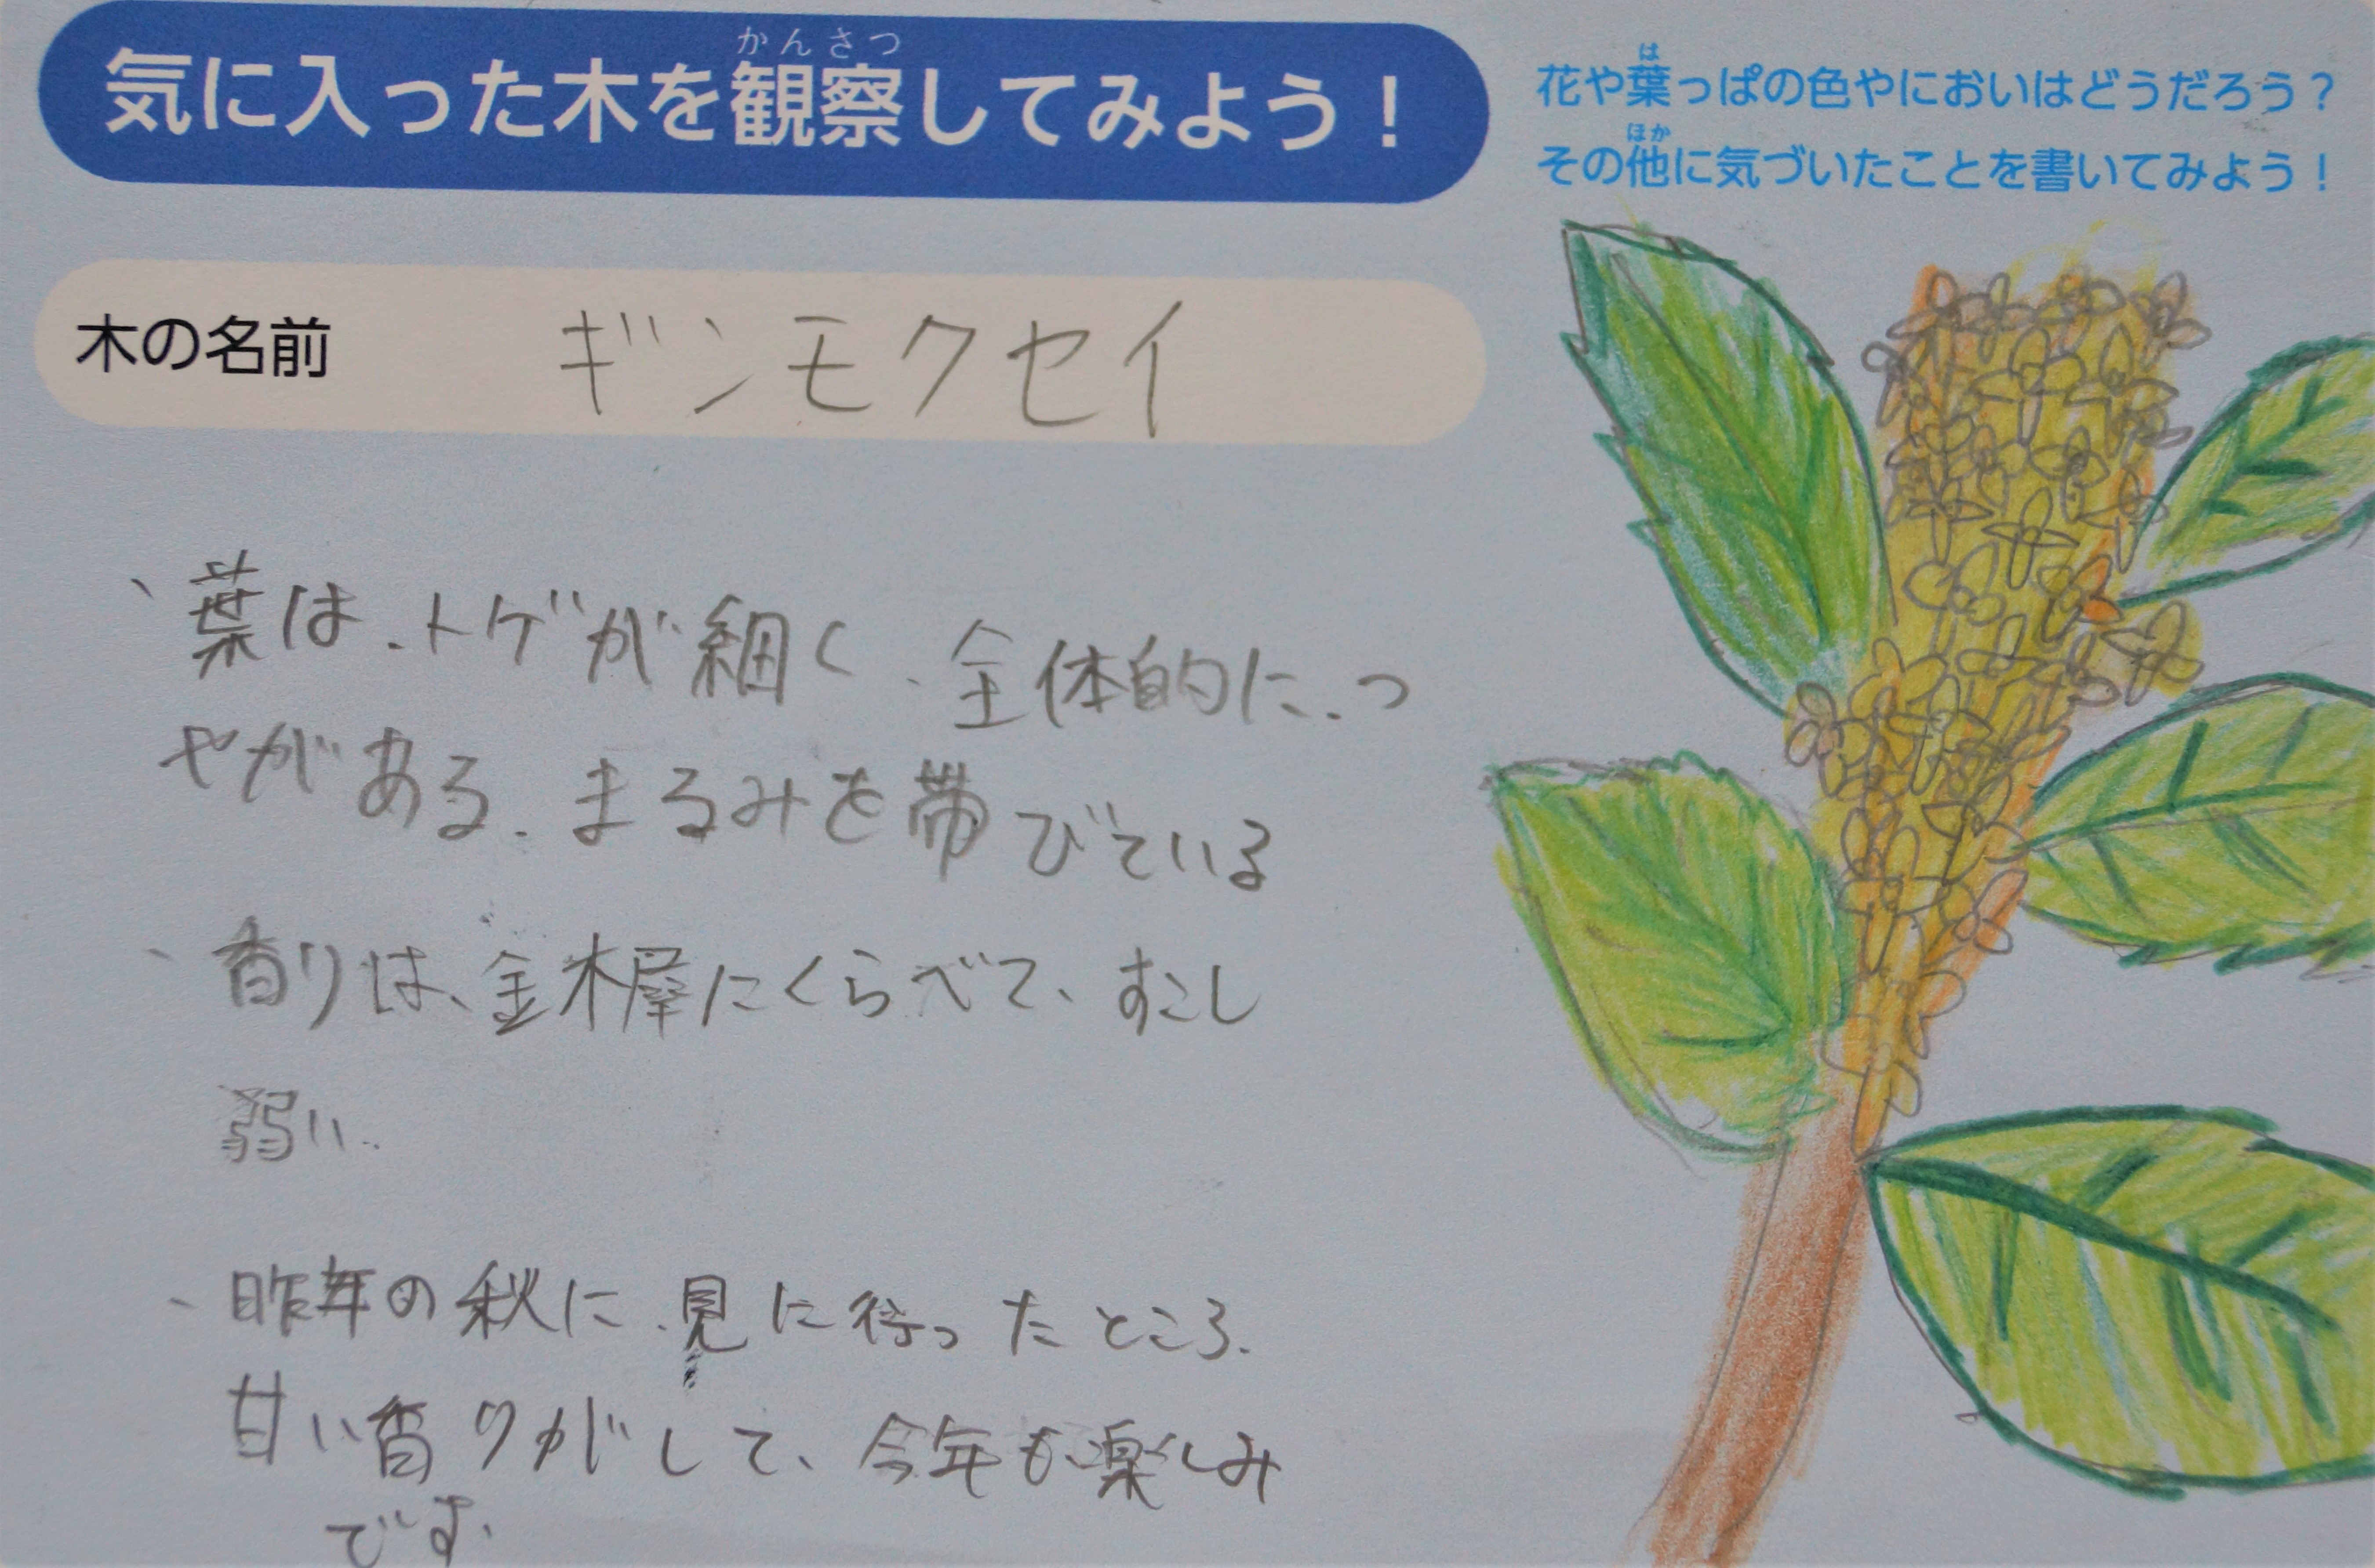 気に入った木を観察してみよう！
かんさつ
花や葉っぱの色やにおいはどうだろう？
は
その他に気づいたことを書いてみよう！
ほか
木の名前 ギンモクセイ
、葉は、トゲが細く、全体的に、つ
やがある、まるみを帯びている
、香りは、金木犀にくらべて、すこし
弱い、
、昨年の秋に、見に行ったところ、
甘い香りがして、今年も楽しみ
です、